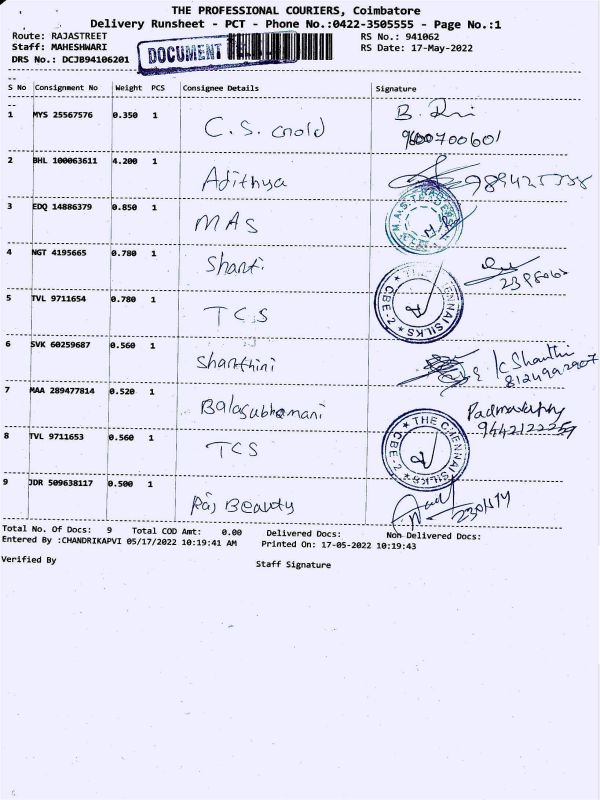 THE PROFESSIONAL COURIERS, Coimbatore
Delivery Runsheet - PCT - Phone No.:0422-3505555 - Page No.:1
Route: RAJASTREET RS No.: 941062
Staff: MAHESHWARI RS Date: 17-May-2022
DRS No.: DCJB94106201
DOCUMENT
S No Consignment No Weight PCS Consignee Details Signature
1 MYS 25567576 0.350 1 C.S. Gnold B.
9600700601
2 BHL 100063611 4.200 1 Adithya
3 EDQ 14886379 0.850 1 MAS
M.A.S. TRADERS
4 NGT 4195665 0.780 1 Shanti
5 TVL 9711654 0.780 1 TCS
THE CHENNAI SILKS CBE-2
6 SVK 60259687 0.560 1 Shanthini K Shanthi
8124992907
7 MAA 289477814 0.520 1 Balasubramani
8 TVL 9711653 0.560 1 TCS
THE CHENNAI SILKS CBE-2
9 JDR 509638117 0.500 1 Raj Beauty
Total No. Of Docs: 9 Total COD Amt: 0.00 Delivered Docs: Non Delivered Docs:
Entered By :CHANDRIKAPVI 05/17/2022 10:19:41 AM Printed On: 17-05-2022 10:19:43
Verified By Staff Signature